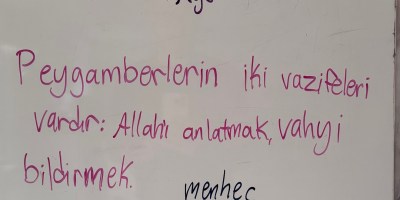 Peygamberlerin iki vazifeleri
vardır: Allahı anlatmak, vahyi
bildirmek.
menhec